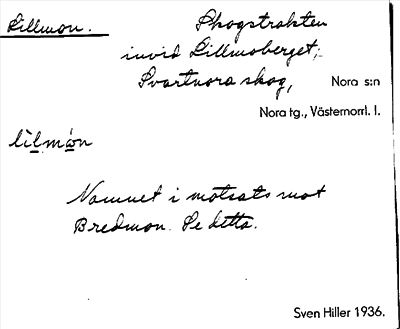 Lillmon. Skogstrakten
invid Lillmoberget;
Svartnora skog, Nora s:n
Nora tg., Västernorrl. l.
lìlmón
Namnet i motsats mot
Bredmon. Se detta.
Sven Hiller 1936.